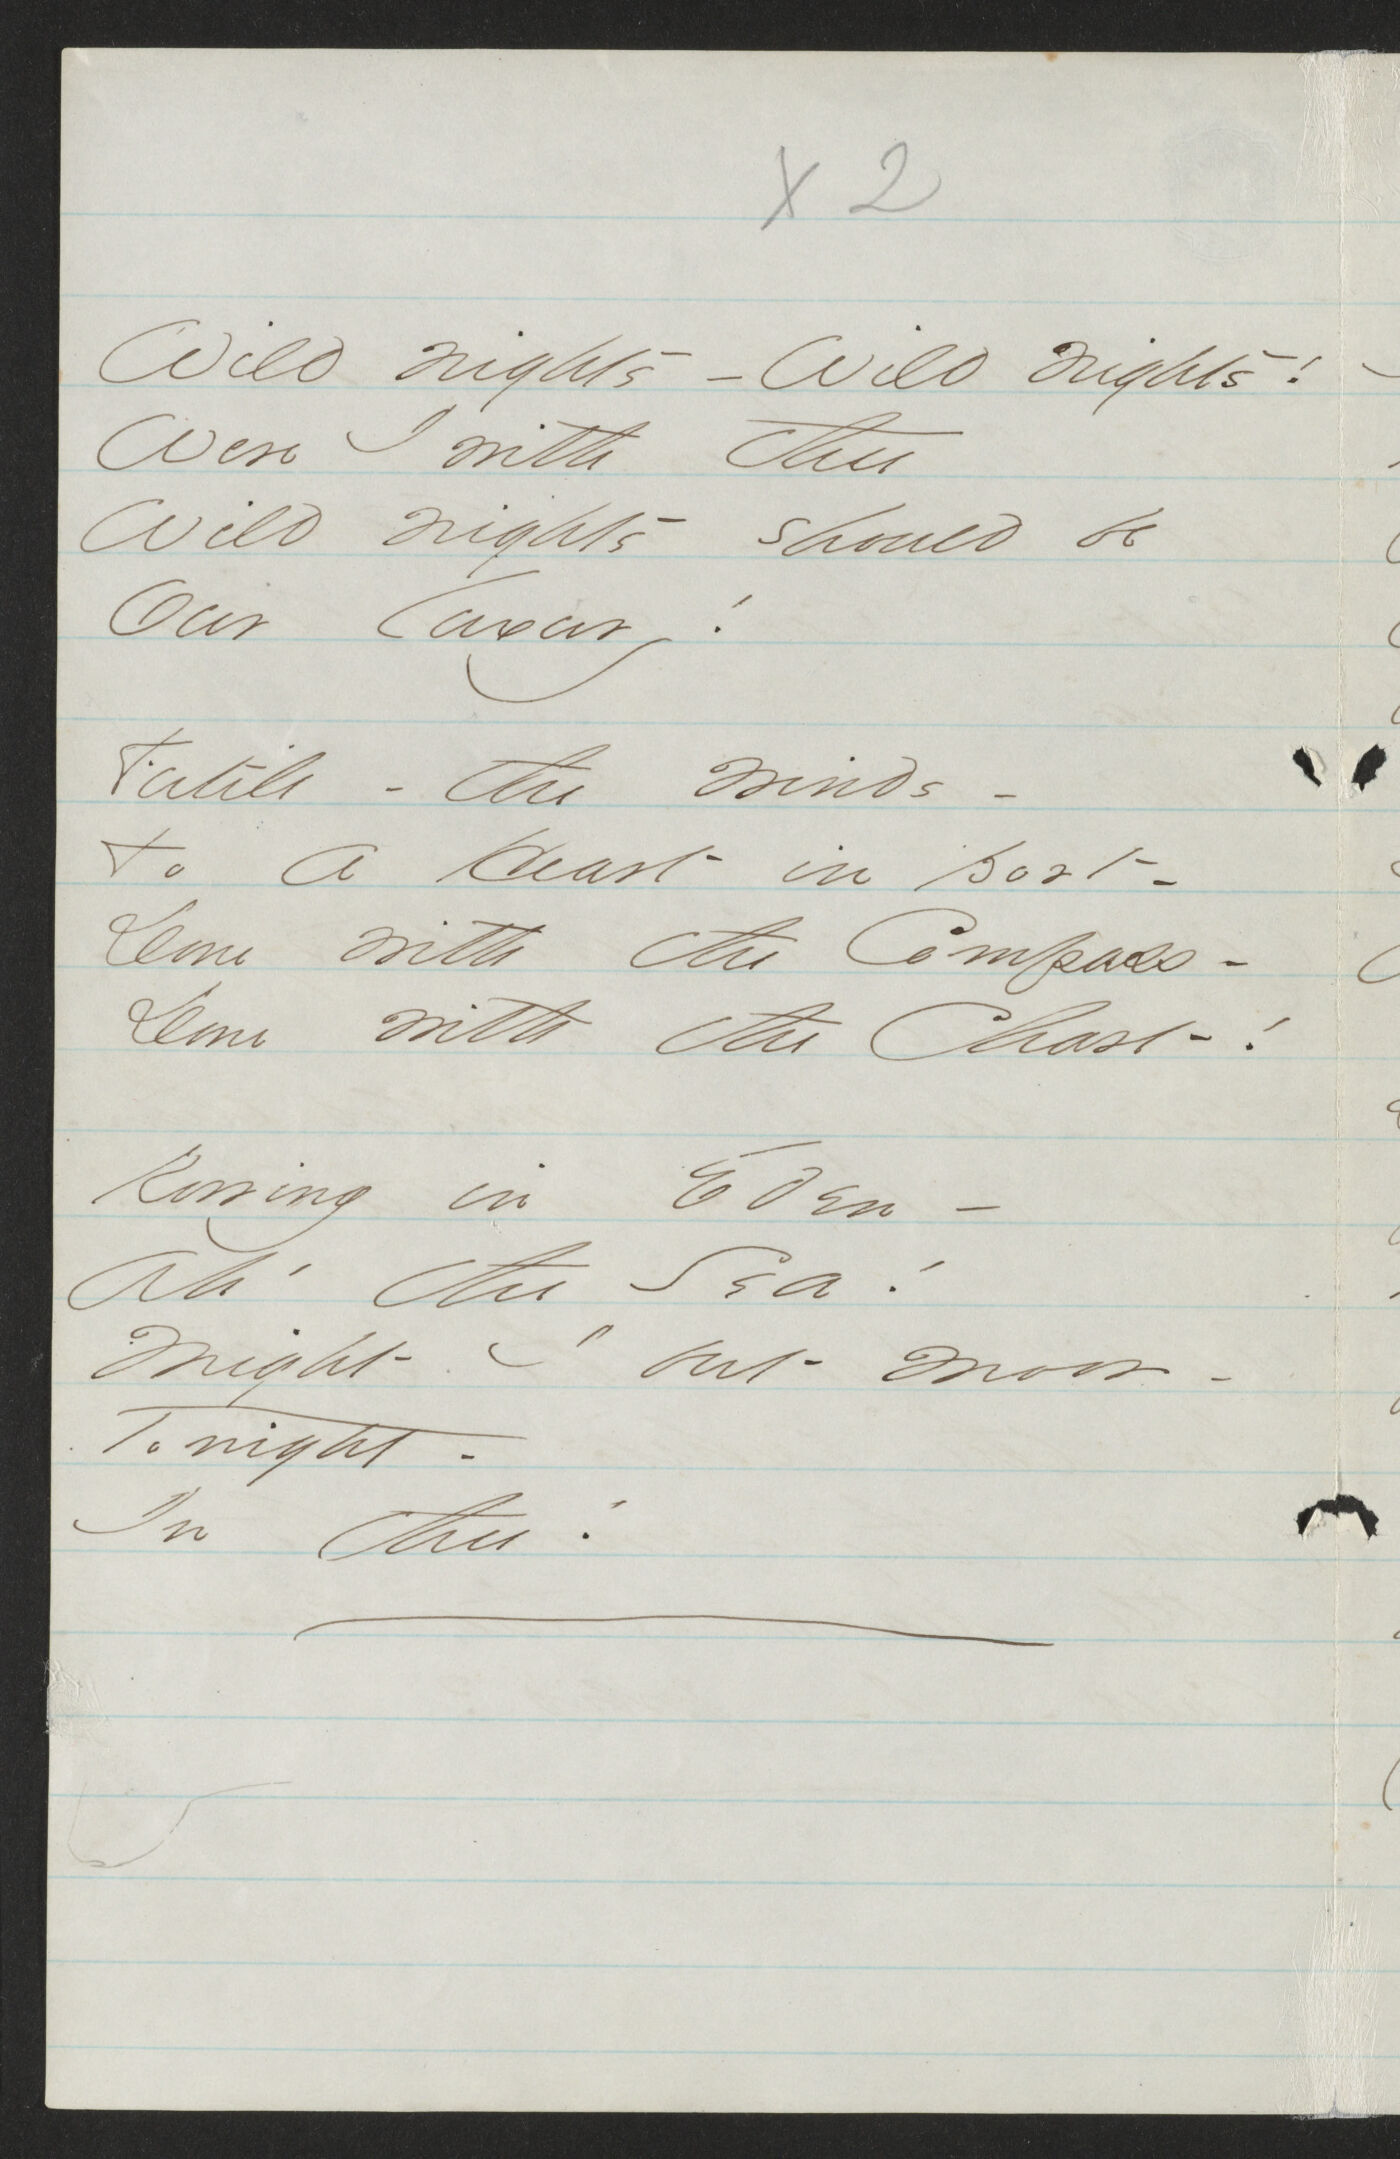 X 2
Wild nights - Wild nights!
Were I with thee
Wild nights should be
Our luxury!
Futile - the winds -
To a Heart in port -
Done with the Compass -
Done with the Chart - !
Rowing in Eden -
Ah! the Sea!
Might I but moor -
Tonight -
In thee!